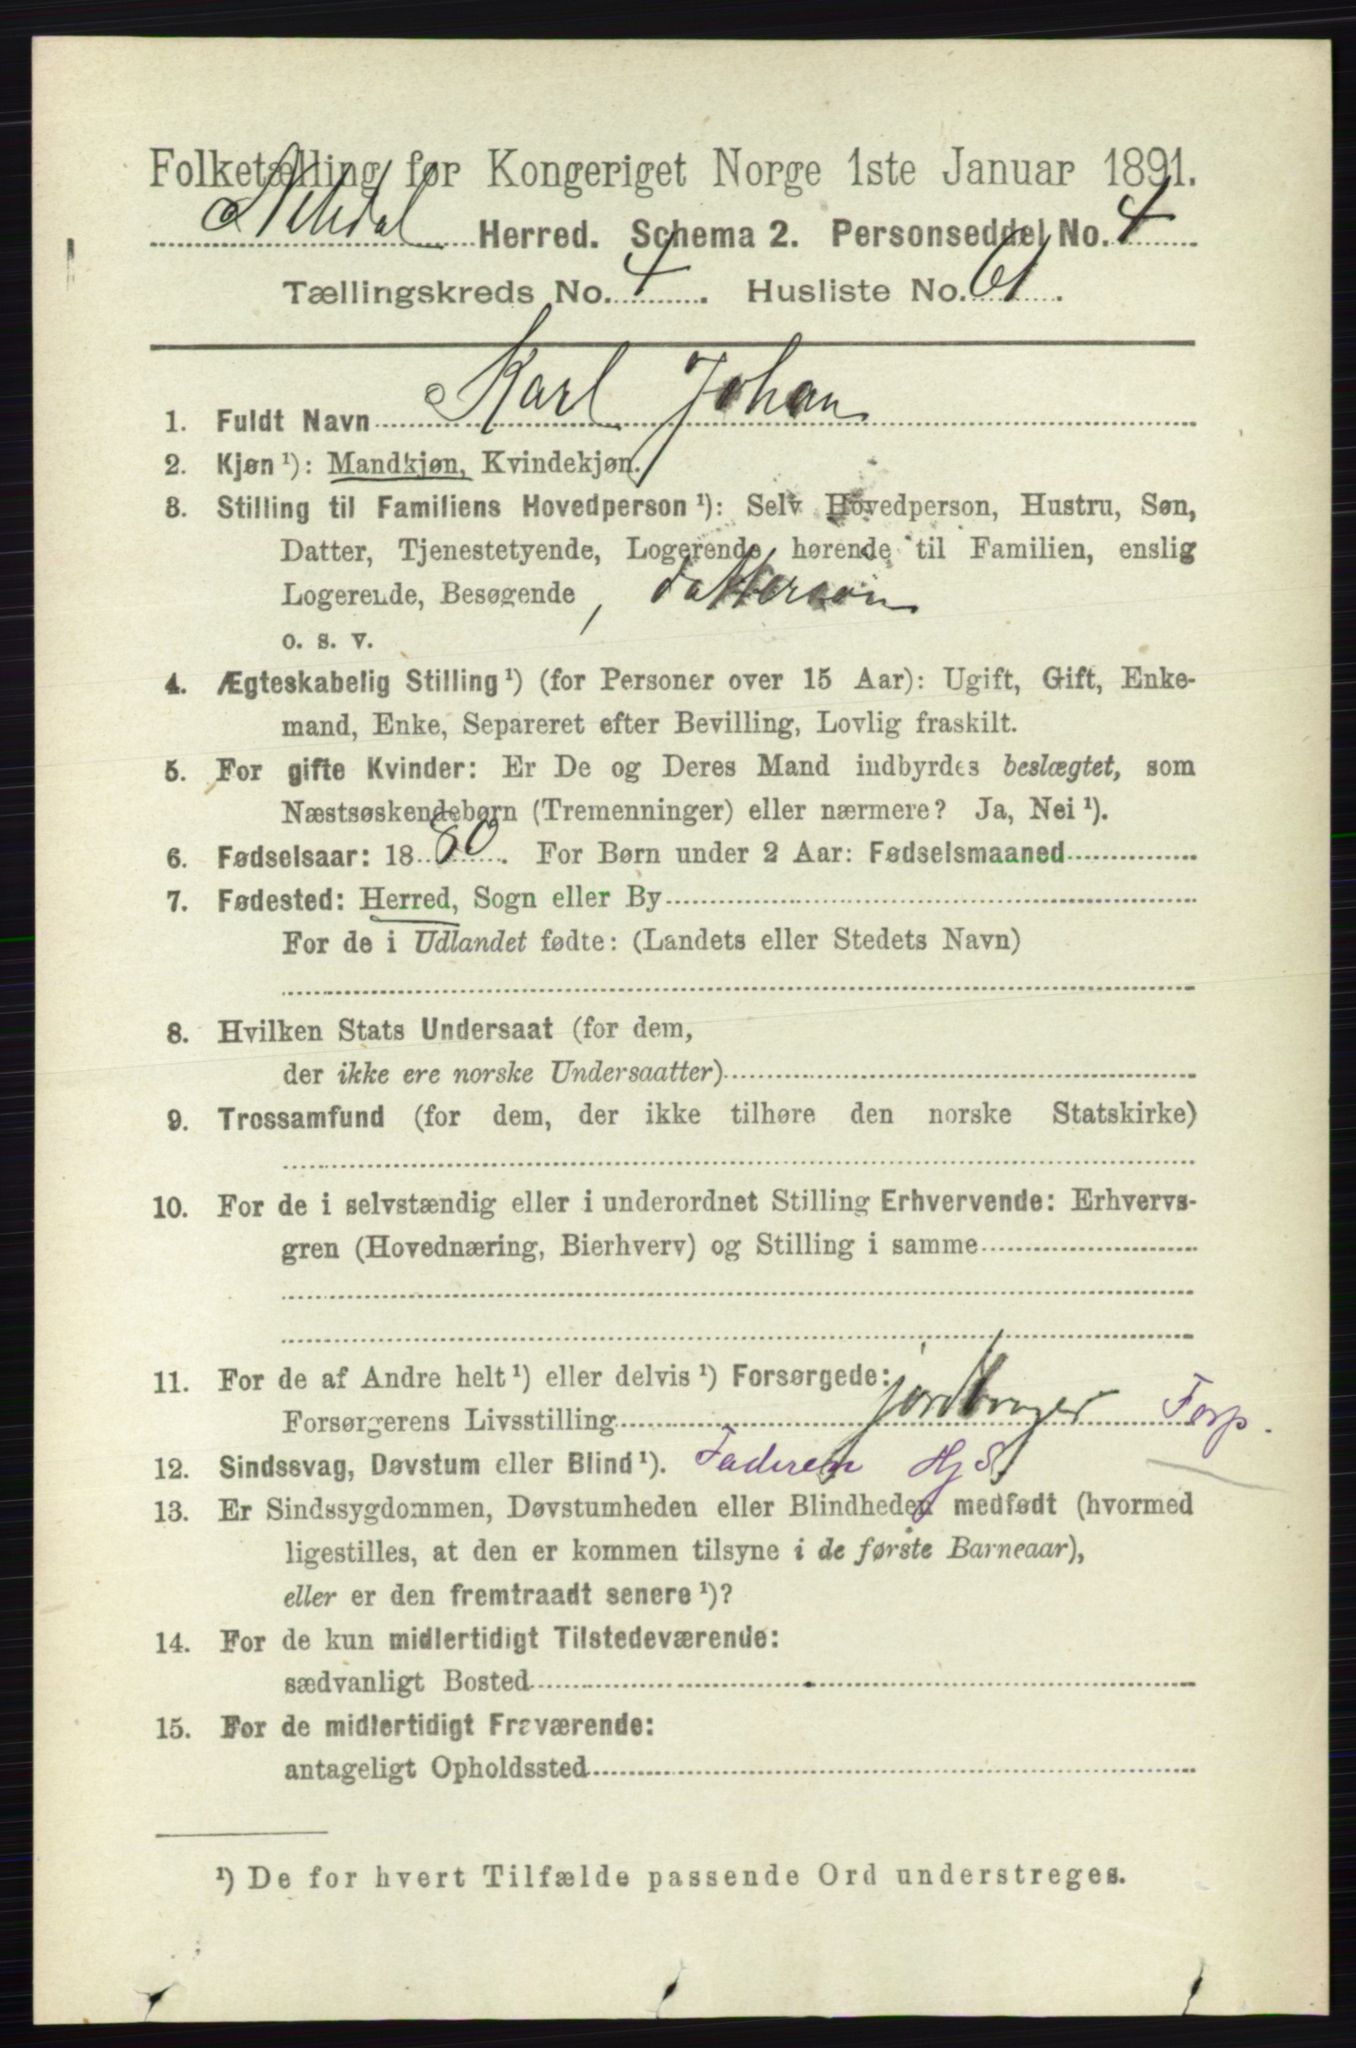 Folketælling for Kongeriget Norge 1ste Januar 1891.
Herred. Schema 2. Personseddel No. 4
Tællingskreds No. 4. Husliste No. 61.
1. Fuldt Navn Karl Johan
2. Kjøn ¹): Mandkjøn, Kvindekjøn.
3. Stilling til Familiens Hovedperson ¹): Selv Hovedperson, Hustru, Søn,
Datter, Tjenestetyende, Logerende hørende til Familien, enslig
Logerende, Besøgende, dattersøn
o. s. v.
4. Ægteskabelig Stilling ¹) (for Personer over 15 Aar): Ugift, Gift, Enke-
mand, Enke, Separeret efter Bevilling, Lovlig fraskilt.
5. For gifte Kvinder: Er De og Deres Mand indbyrdes beslægtet, som
Næstsøskendebørn (Tremenninger) eller nærmere? Ja, Nei ¹).
6. Fødselsaar: 1880. For Børn under 2 Aar: Fødselsmaaned
7. Fødested: Herred, Sogn eller By
For de i Udlandet fødte: (Landets eller Stedets Navn)
8. Hvilken Stats Undersaat (for dem,
der ikke ere norske Undersaatter)
9. Trossamfund (for dem, der ikke tilhøre den norske Statskirke)
10. For de i selvstændig eller i underordnet Stilling Erhvervende: Erhvervs-
gren (Hovednæring, Bierhverv) og Stilling i samme
11. For de af Andre helt ¹) eller delvis ¹) Forsørgede:
Forsørgerens Livsstilling jordbruger Forp.
12. Sindssvag, Døvstum eller Blind ¹). Faderen
13. Er Sindssygdommen, Døvstumheden eller Blindheden medfødt (hvormed
ligestilles, at den er kommen tilsyne i de første Barneaar),
eller er den fremtraadt senere ¹)?
14. For de kun midlertidigt Tilstedeværende:
sædvanligt Bosted
15. For de midlertidigt Fraværende:
antageligt Opholdssted
¹) De for hvert Tilfælde passende Ord understreges.